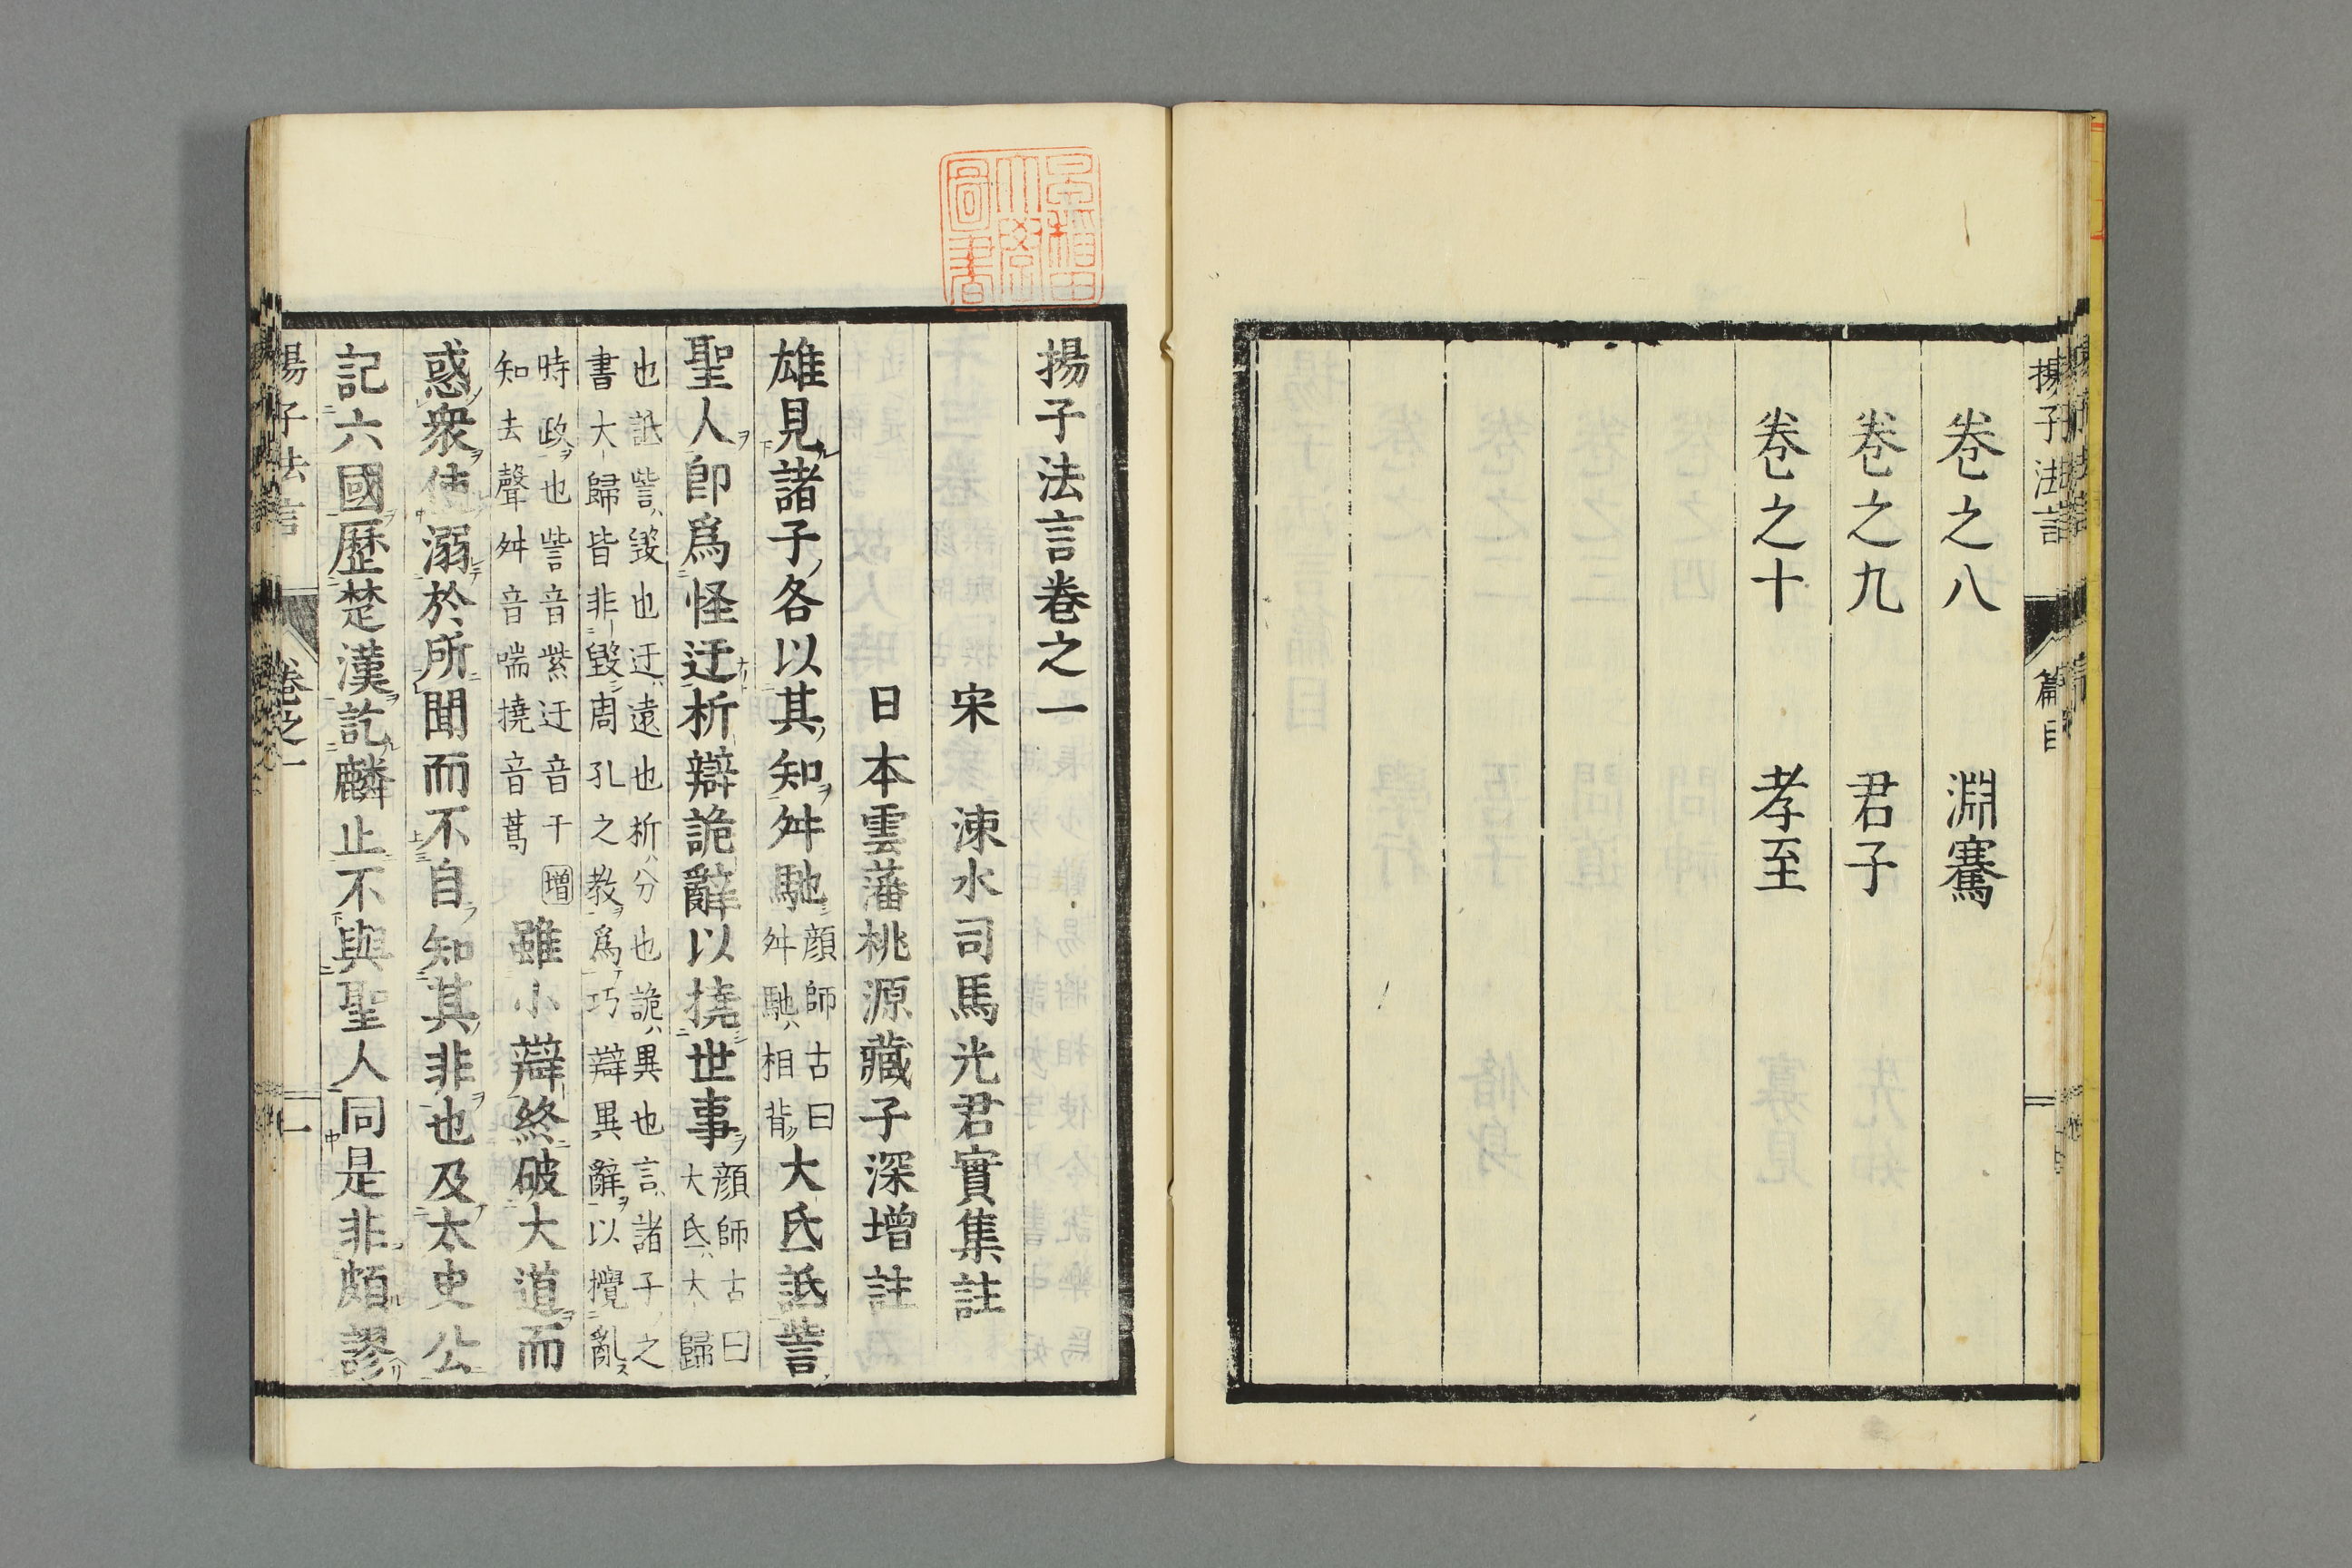 揚子法言
篇目
卷之八 淵騫
卷之九 君子
卷之十 孝至
早稲田
大學
圖書
揚子法言卷之一
宋 涑水司馬光君實集註
日本雲藩桃源藏子深增註
雄見諸子各以其知舛馳顔師古曰
舛馳相背大氐詆訾
聖人卽爲怪迂析辯詭辭以撓世事顔師古曰
大氐大歸
也詆訾毀也迂遠也析分也詭異也言諸子之
書大歸皆非毀周孔之教爲巧辯異辭以攪亂
時政也訾音紫迂音干
知去聲舛音喘撓音蒿增雖小辯終破大道而
惑衆使溺於所聞而不自知其非也及太史公
記六國歷楚漢訖麟止不與聖人同是非頗謬
揚子法言
卷之一
一